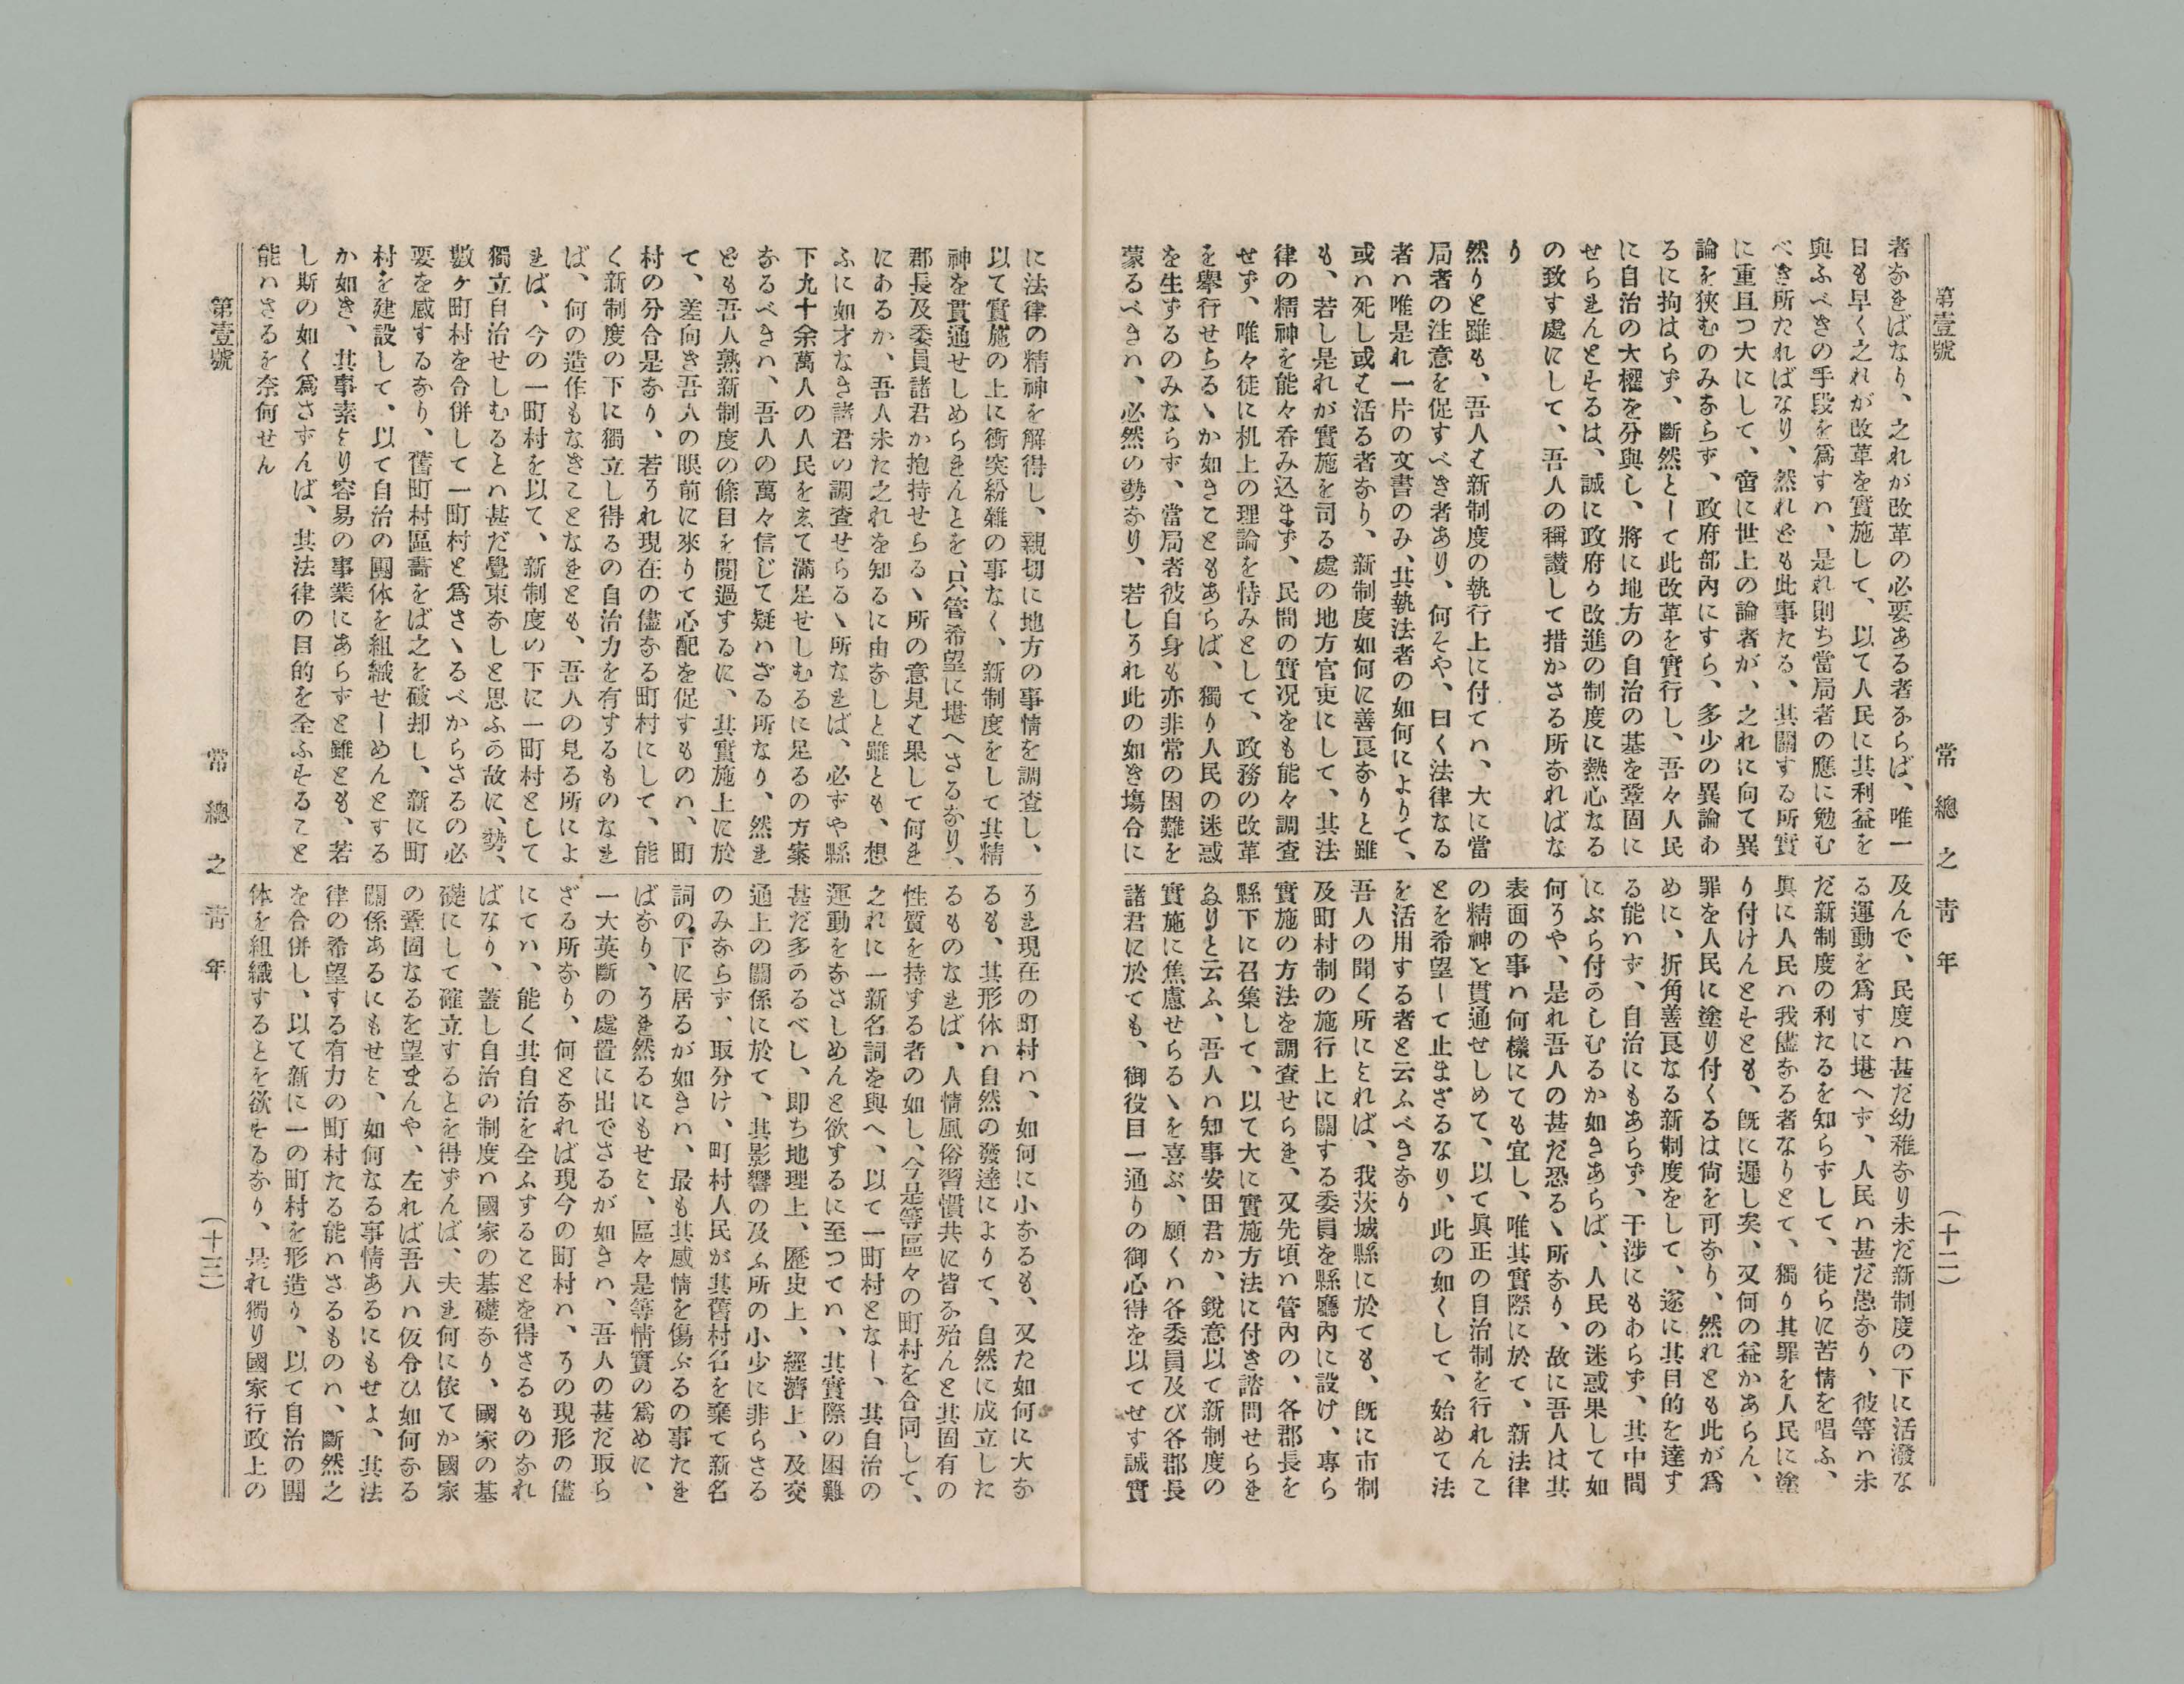 第壹號
常總之靑年
（十二）
者なればなり、之れが改革の必要ある者ならば、唯一
日も早く之れが改革を實施して、以て人民に其利益を
與ふべきの手段を爲すハ、是れ則ち當局者の應に勉む
べき所たればなり、然れども此事たる、其關する所實
に重且つ大にして、啻に世上の論者が、之れに向て異
論を狹むのみならず、政府部內にすら、多少の異論あ
るに拘はらず、斷然として此改革を實行し、吾々人民
に自治の大權を分與し、將に地方の自治の基を鞏固に
せられんとするは、誠に政府り改進の制度に熱心なる
の致す處にして、吾人の稱讃して措かさる所なればな
り
然りと雖も、吾人も新制度の執行上に付てハ、大に當
局者の注意を促すべき者あり、何そや、曰く法律なる
者ハ唯是れ一片の文書のみ、其執法者の如何によりて、
或ハ死し或も活る者なり、新制度如何に善良なりと雖
も、若し是れが實施を司る處の地方官吏にして、其法
律の精神を能々呑み込まず、民間の實況をも能々調査
せず、唯々徒に机上の理論を恃みとして、政務の改革
を擧行せらるヽか如きこともあらば、獨り人民の迷惑
を生ずるのみならず、當局者彼自身も亦非常の困難を
蒙るべきハ、必然の勢なり、若しうれ此の如き塲合に
及んで、民度ハ甚だ幼稚なり未だ新制度の下に活潑な
る運動を爲すに堪へず、人民ハ甚だ愚なり、彼等ハ未
だ新制度の利たるを知らずして、徒らに苦情を唱ふ、
眞に人民ハ我儘なる者なりとて、獨り其罪を人民に塗
り付けんとすとも、旣に遲し矣、又何の益かあらん、
罪を人民に塗り付くるは尙を可なり、然れとも此が爲
めに、折角善良なる新制度をして、遂に其目的を達す
る能ハず、自治にもあらず、干涉にもわらず、其中間
にぶら付のしむるか如きあらば、人民の迷惑果して如
何うや、是れ吾人の甚だ恐るヽ所なり、故に吾人は其
表面の事ハ何樣にても宜し、唯其實際に於て、新法律
の精神を貫通せしめて、以て眞正の自治制を行れんこ
とを希望して止まざるなり、此の如くして、始めて法
を活用する者と云ふべきなり
吾人の聞く所にとれば、我茨城縣に於ても、旣に市制
及町村制の施行上に關する委員を縣廳內に設け、專ら
實施の方法を調査せられ、又先頃ハ管內の、各郡長を
縣下に召集して、以て大に實施方法に付き諮問せられ
ゐりと云ふ、吾人ハ知事安田君か、銳意以て新制度の
實施に焦慮せらるヽを喜ぶ、願くハ各委員及び各郡長
諸君に於ても、御役目一通りの御心得を以てせす誠實
に法律の精神を解得し、親切に地方の事情を調査し、
以て實施の上に衝突紛雜の事なく、新制度をして其精
神を貫通せしめられんとを、只管希望に堪へさるなり、
郡長及委員諸君か抱持せらるヽ所の意見も果して何れ
にあるか、吾人未た之れを知るに由なしと雖とも、想
ふに如才なき諸君の調査せらるヽ所なれば、必ずや縣
下九十余萬人の人民をゑて滿足せしむるに足るの方案
なるべきハ、吾人の萬々信じて疑ハざる所なり、然れ
ども吾人熟新制度の條目を閱過するに、其實施上に於
て、差向き吾人の眼前に來りて心配を促すものハ、町
村の分合是なり、若うれ現在の儘なる町村にして、能
く新制度の下に獨立し得るの自治力を有するものなれ
ば、何の造作もなきことなれとも、吾人の見る所によ
れば、今の一町村を以て、新制度の下に一町村として
獨立自治せしむるとハ甚だ覺束なしと思ふの故に、勢、
數ヶ町村を合併して一町村と爲さヽるべからさるの必
要を感するなり、舊町村區畵をば之を破却し、新に町
村を建設して、以て自治の團体を組織せしめんとする
か如き、其事素とり容易の事業にあらずと雖とも、若
し斯の如く爲さずんば、其法律の目的を全ふすること
能ハさるを奈何せん
うれ現在の町村ハ、如何に小なるも、又た如何に大な
るも、其形体ハ自然の發達によりて、自然に成立した
るものなれば、人情風俗習慣共に皆な殆んと其固有の
性質を持する者の如し、今是等區々の町村を合同して、
之れに一新名詞を與へ、以て一町村となし、其自治の
運動をなさしめんと欲するに至つてハ、其實際の困難
甚だ多のるべし、即ち地理上、歷史上、經濟上、及交
通上の關係に於て、其影響の及ふ所の小少に非らさる
のみならず、取分け、町村人民が其舊村名を棄て新名
詞の下に居るが如きハ、最も其感情を傷ぶるの事たれ
ばなり、うれ然るにもせと、區々是等情實の爲めに、
一大英斷の處置に出でさるが如きハ、吾人の甚だ取ら
ざる所なり、何となれば現今の町村ハ、うの現形の儘
にてハ、能く其自治を全ふすることを得さるものなれ
ばなり、蓋し自治の制度ハ國家の基礎なり、國家の基
礎にして確立するとを得ずんば、夫れ何に依てか國家
の鞏固なるを望まんや、左れば吾人ハ仮令ひ如何なる
關係あるにもせと、如何なる事情あるにもせよ、其法
律の希望する有力の町村たる能ハさるものハ、斷然之
を合併し、以て新に一の町村を形造り、以て自治の團
体を組織するとを欲するなり、是れ獨り國家行政上の
第壹號
常總之靑年
（十三）